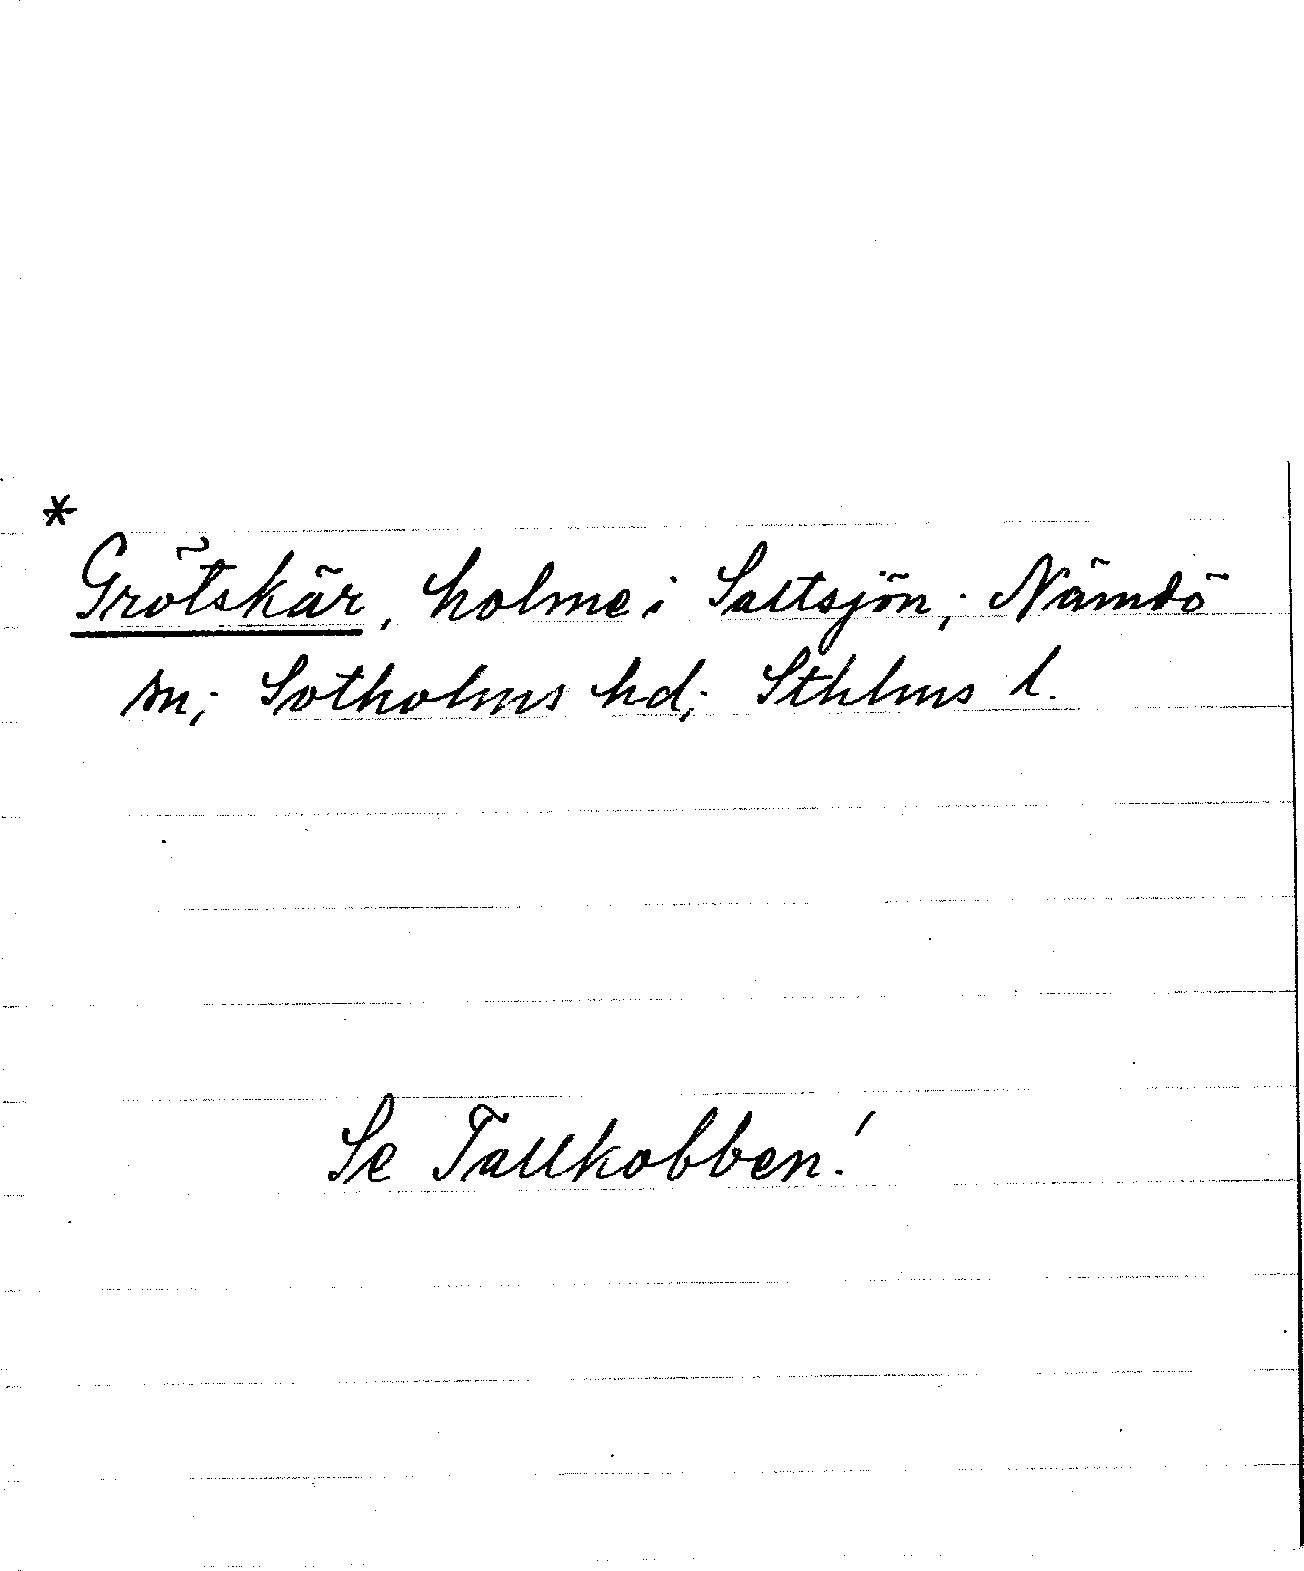 *
Grötskär, holme i Saltsjön; Nämdö
sn; Sotholms hd; Sthlms l.
Se Tallkobben!